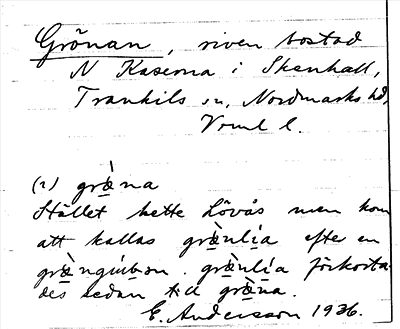 Grönan, riven bostad
N Kaserna i Skenhall,
Trankils sn, Nordmarks hd,
Vrml l.
(2) grø̀na
Stället hette Lövås men kom
att kallas grø̀nlia efter en
grø̀ngubbon. grø̀nlia förkorta
des sedan till grø̀na.
E. Andersson 1936.